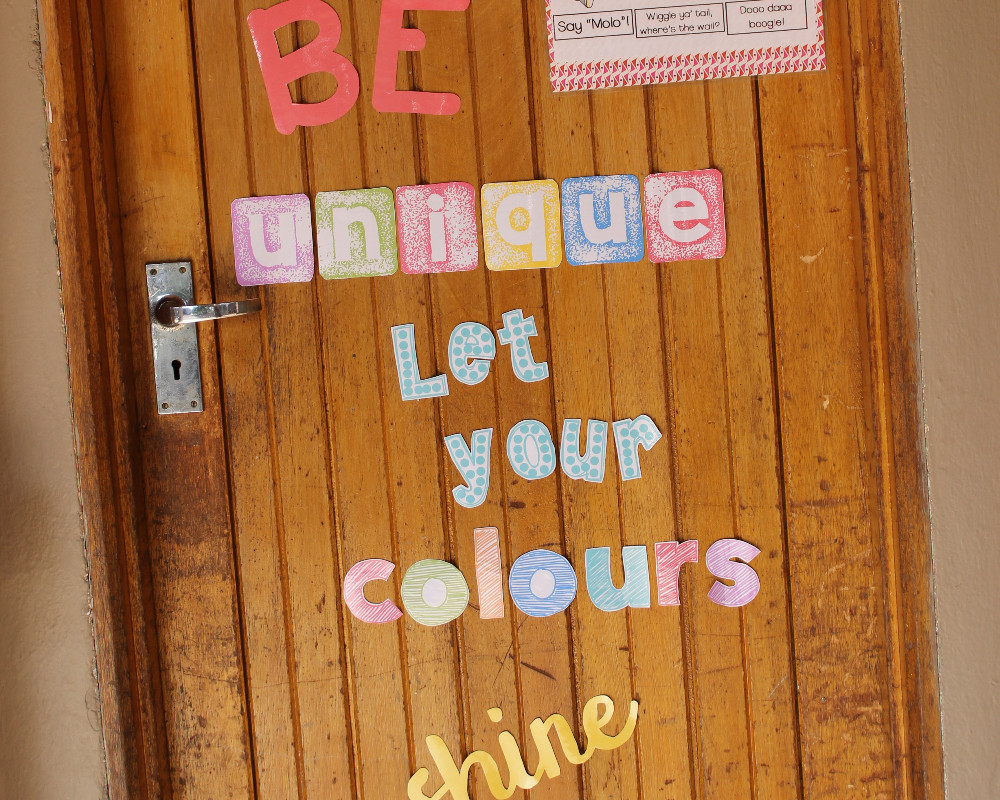 BE
Say "Molo"! Wiggle ya' tail, where's the wall? Dooo daaa boogie!
unique
Let
your
colours
shine